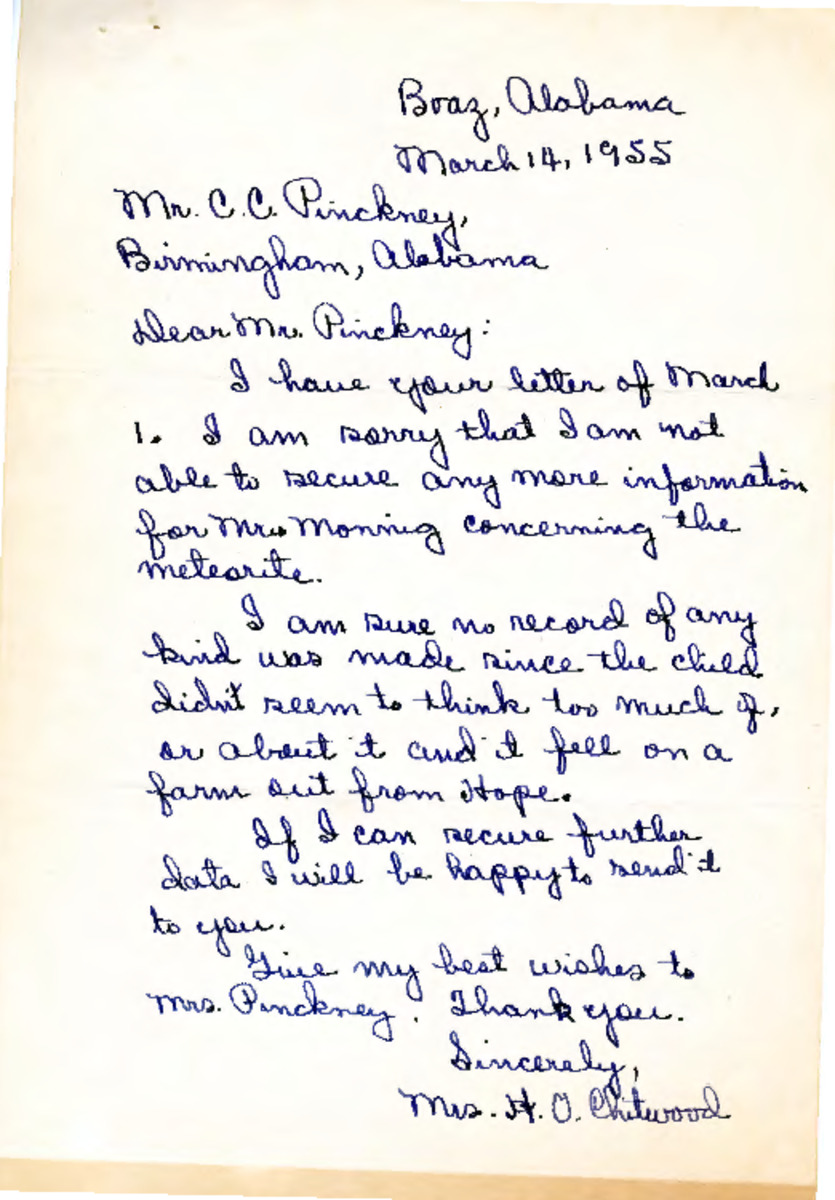 Boaz, Alabama
March 14, 1955
Mr. C. C. Pinckney,
Birmingham, Alabama
Dear Mr. Pinckney:
I have your letter of March
1. I am sorry that I am not
able to secure any more information
for Mr. Monnig concerning the
meteorite.
I am sure no record of any
kind was made since the child
didn't seem to think too much of,
or about it and it fell on a
farm out from Hope.
If I can secure further
data I will be happy to send it
to you.
Give my best wishes to
Mrs. Pinckney. Thank you.
Sincerely,
Mrs. H. O. Chitwood